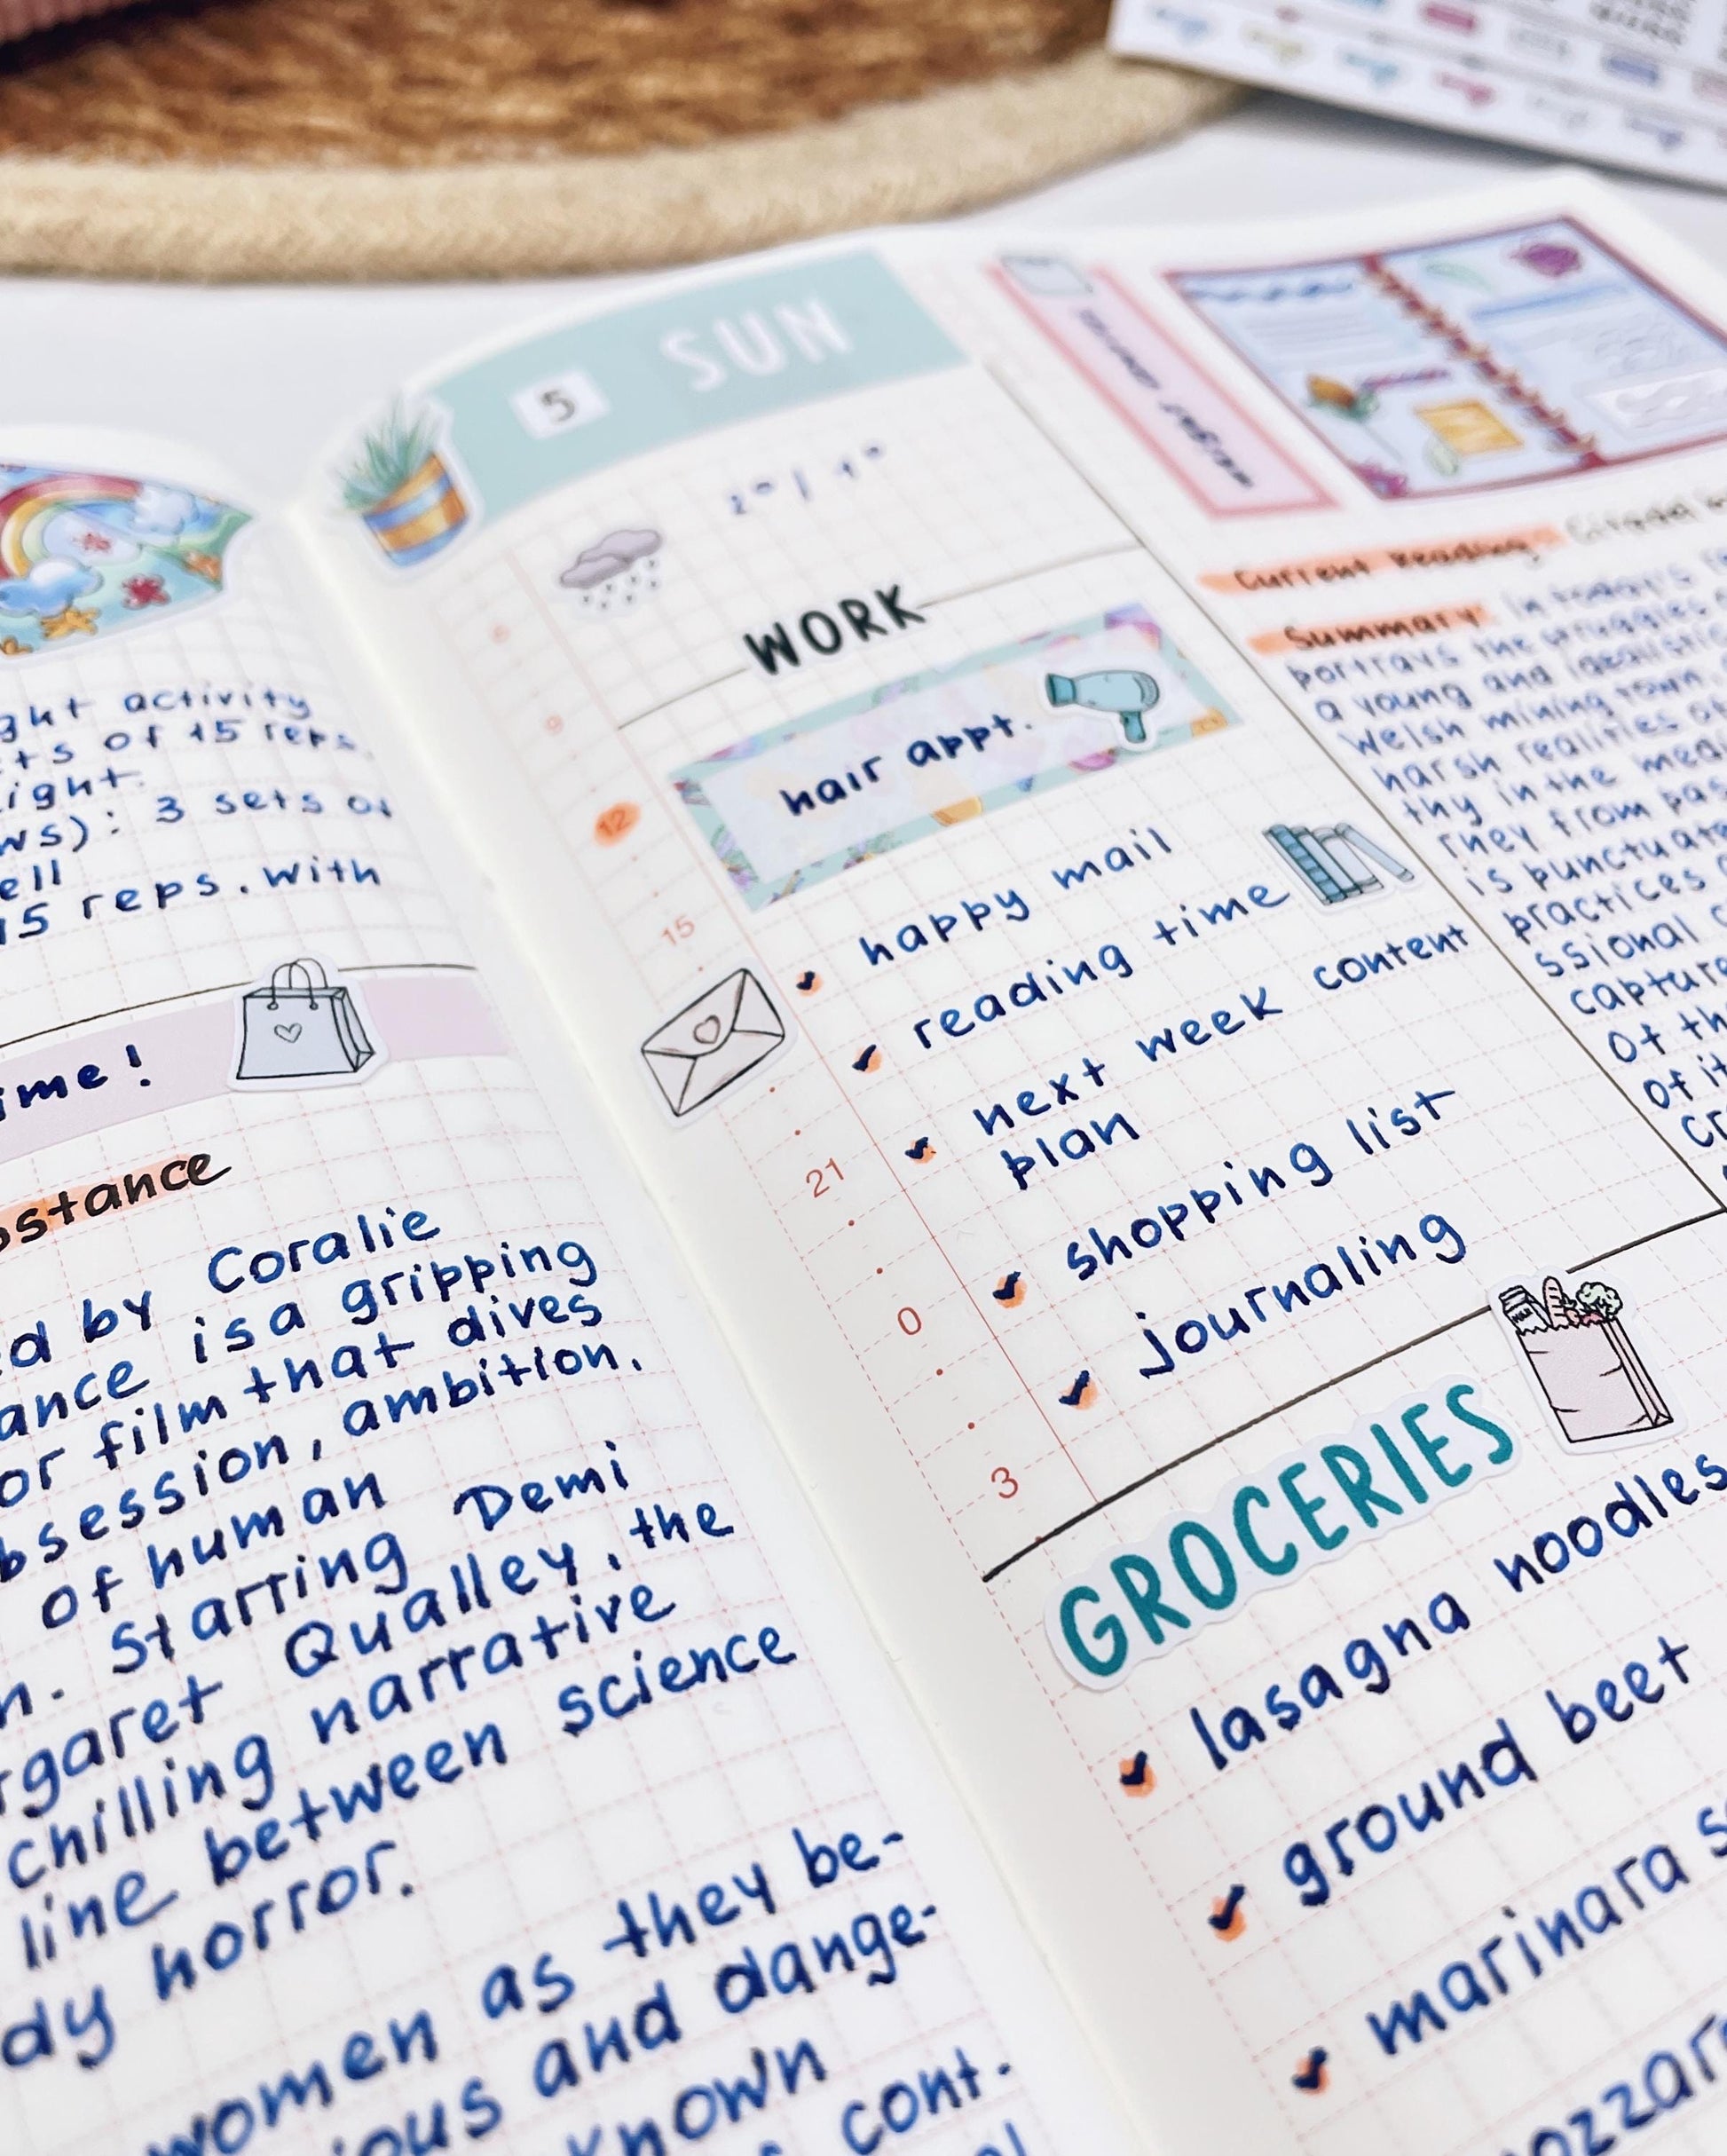 ght activity
ts of 15 reps.
ight.
ws): 3 sets of
ell
15 reps. With
ime!
bstance
ed by Coralie
ance is a gripping
or film that dives
bsession, ambition,
of human
n. Starring Demi
rgaret Qualley, the
chilling narrative
line between science
dy horror.
women as they be-
ious and dange-
known
cont.
5 SUN
WORK
hair appt.
happy mail
reading time
next week content
plan
shopping list
journaling
6
9
12
15
21
0
3
GROCERIES
lasagna noodles
ground beef
marinara s
ozzar
Current Reading: Citadel
Summary: In today's
portrays the struggles
a young and idealistic
Welsh mining town.
harsh realities of
thy in the medi
rney from pas
is punctuate
practices
ssional c
capture
of th
of it
cr